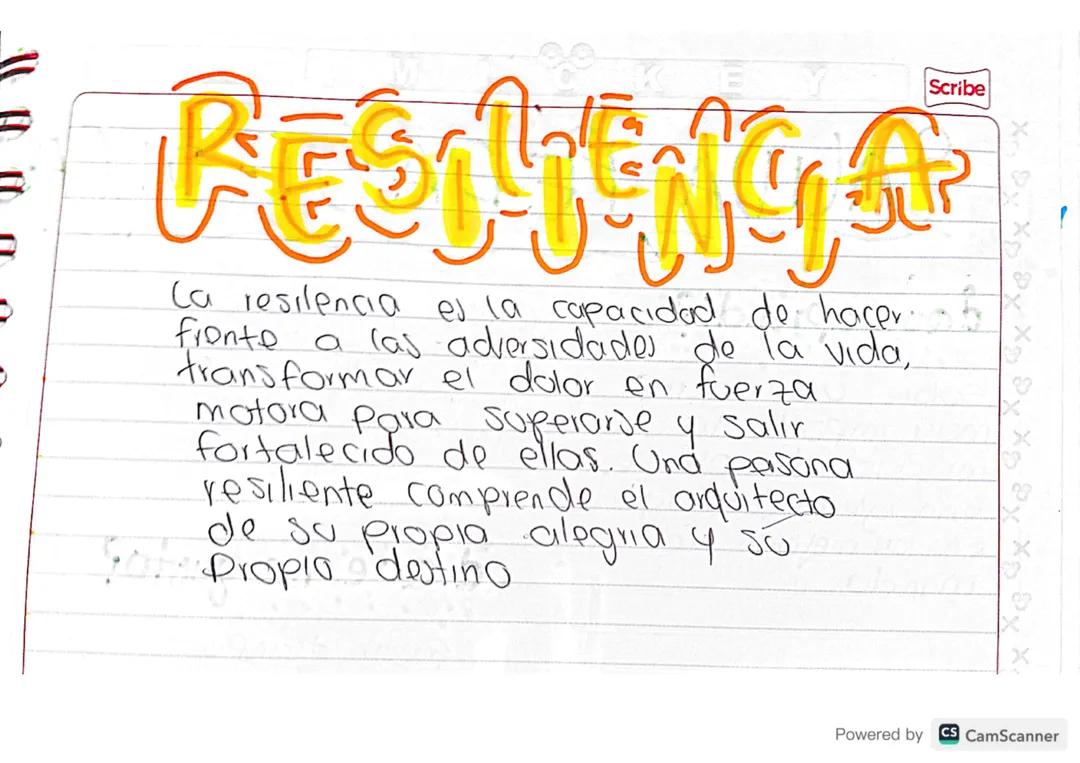 M I C K E Y
Scribe
RESILIENCIA
La resilencia es la capacidad de hacer
frente a las adversidades de la vida,
transformar el dolor en fuerza
motora para superarse y salir
fortalecido de ellas. Una pasona
resiliente comprende el arquitecto
de su propia alegria y su
propio destino
Powered by CS CamScanner